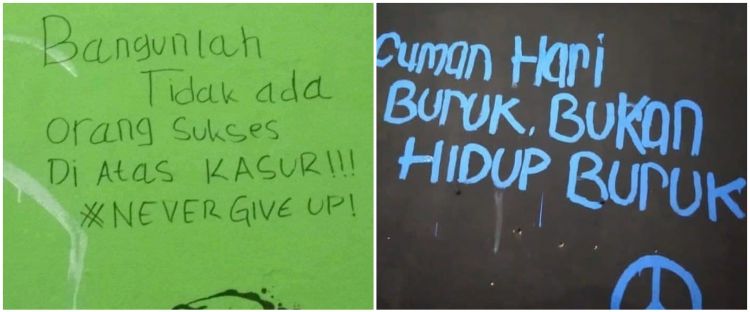 Bangunlah
Tidak ada
orang Sukses
Di Atas KASUR!!!
#NEVER GIVE UP!
Cuman Hari
BURUK, BUKAN
HIDUP BURUK